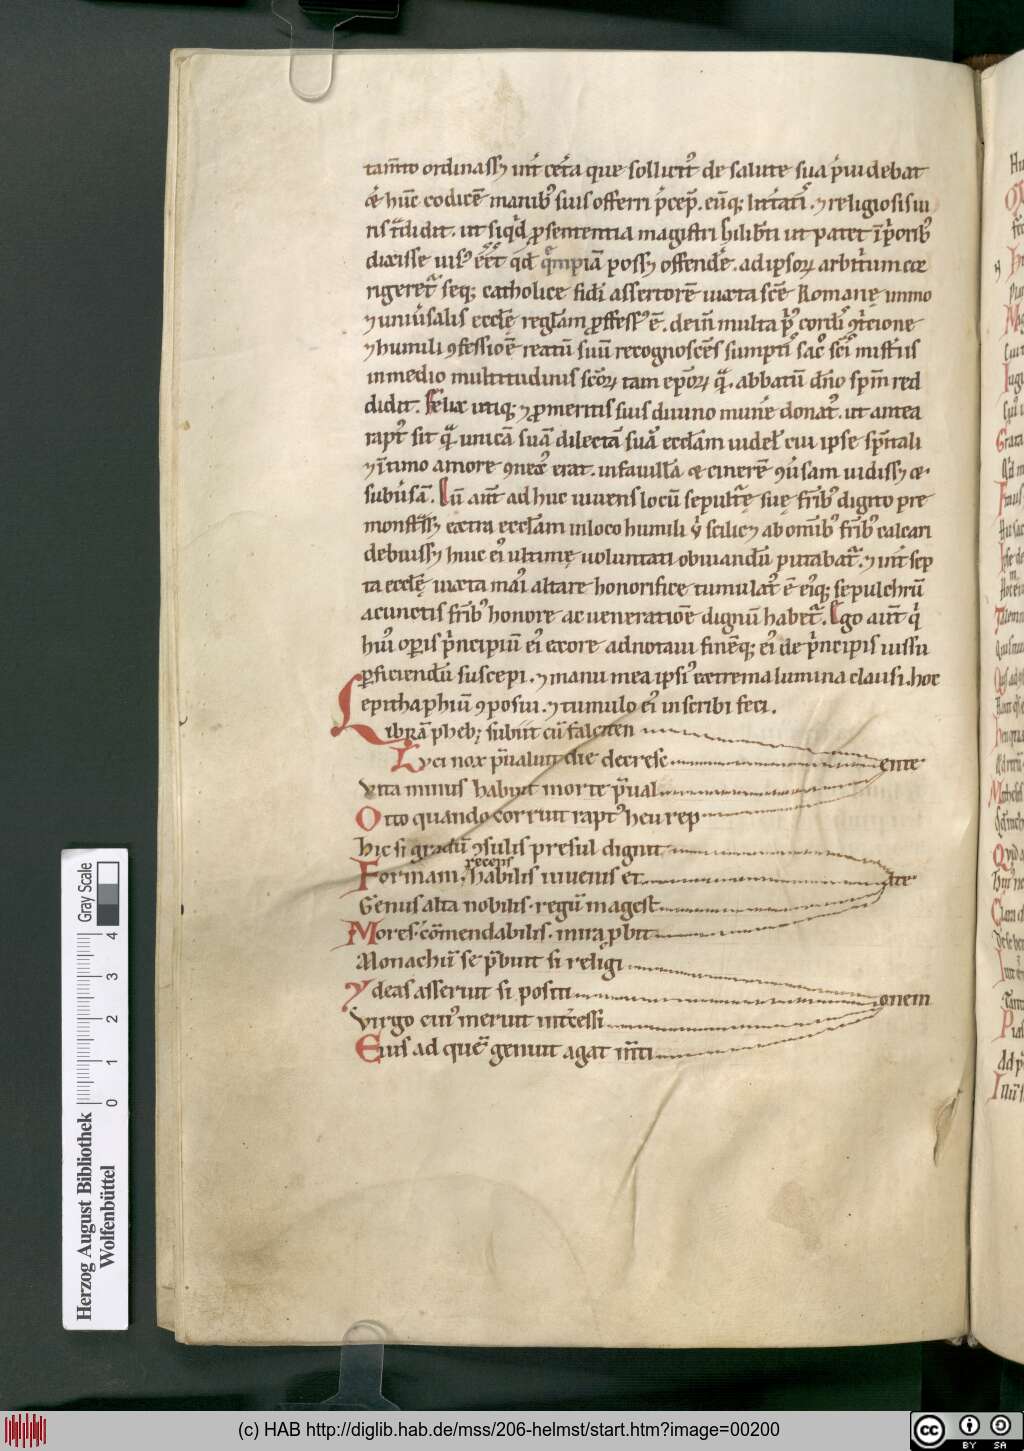 tam̅to ordinassꝫ int̅ cet̅a que sollicit᷒ de salute sua p̅ui debat
ee̅ hu̅c codice̅ manib᷒ suis offerri p̅cep̅. eu̅qꝫ litt̅ati. ⁊ religiosis ui
ris t̅didit. ut siqͥd ꝓ sententia magistri hilib̅ti ut patet i̅ p̅orib᷒
dixisse uis᷒ e̅e̅t qd̅ possꝫ offende̅. ad ipsoꝝ arbit̅um cor
rigeret᷒ seqꝫ catholice fidi assertore̅ iuxta sce̅ Romanę immo
⁊ uniu̅salis eccl̅ę regl̅am ꝓfess᷒ e̅. dein̅ multa p᷒ cordi᷒ ꝯt̅cione
⁊ humili ꝯfessio̅e reatu̅ suu̅ recognosce̅s sumpti᷒ sac᷒ sci᷒ mist̅iis
in medio multitudinis sc̅oꝝ tam ep̅oꝝ qͣ abbatu̅ dn̅o spm̅ red
didit. Felix utiqꝫ ⁊ ꝓ meritis suis diuino mune̅ donat᷒. ut antea
rapt᷒ sit qͣ unica̅ sua̅ dilecta̅ sua̅ eccl̅am uidel̅ cui ipse sp̅itali
⁊ i̅timo amore ꝯnex᷒ erat. in fauilla̅ & cinere̅ ꝯu̅sam uidissꝫ &
subu̅sa̅. Cu̅ aut̅ ad huc uiuens locu̅ sepult̅ę suę fr̅ib᷒ digito pre
monst̅assꝫ extra eccl̅am in loco humili qͥ scilicꝫ ab om̅ib᷒ fr̅ib᷒ calcari
debuissꝫ huic ei᷒ ultimę uoluntati obuiandu̅ putabat᷒. ⁊ int̅ sep
ta eccl̅ę iuxta mai᷒ altare honorifice tumulat᷒ e̅ ei᷒qꝫ sepulchru̅
a cunctis fr̅ib᷒ honore ac ueneratio̅e dignu̅ habet᷒. Ego aut̅ qͥ
hui᷒ oꝑis p̅ncipiu̅ ei᷒ exore adnotaui fine̅qꝫ ei᷒ de p̅ncipis iussu
ꝑficiendu̅ suscepi. ⁊ manu mea ipsi᷒ extrema lumina clausi. hoc
epithaphiu̅ ꝯposui. ⁊ tumulo ei᷒ inscribi feci.
Libra̅ phebꝫ subiit cu̅ falciten
Luci nox p̅ualuit die decresc ente
Vita minus habuit morte p̅ual
Otto quando corruit rapt᷒ heu rep
Hic si gradu̅ ꝯsulis presul dignit
recens
Formam, habilis iuuenis et ate
Genus alta nobilis. regu̅ magest
Mores. co̅mendabilis. mira ꝓbit
Monachu̅ se p̅buit si religi
Ydeas asseruit si positi onem
Virgo cui᷒ meruit int̅cessi
Eius ad que̅ genuit agat im̅ti
Herzog August Bibliothek
Wolfenbüttel
0 1 2 3 4
Gray Scale
(c) HAB http://diglib.hab.de/mss/206-helmst/start.htm?image=00200
cc BY SA